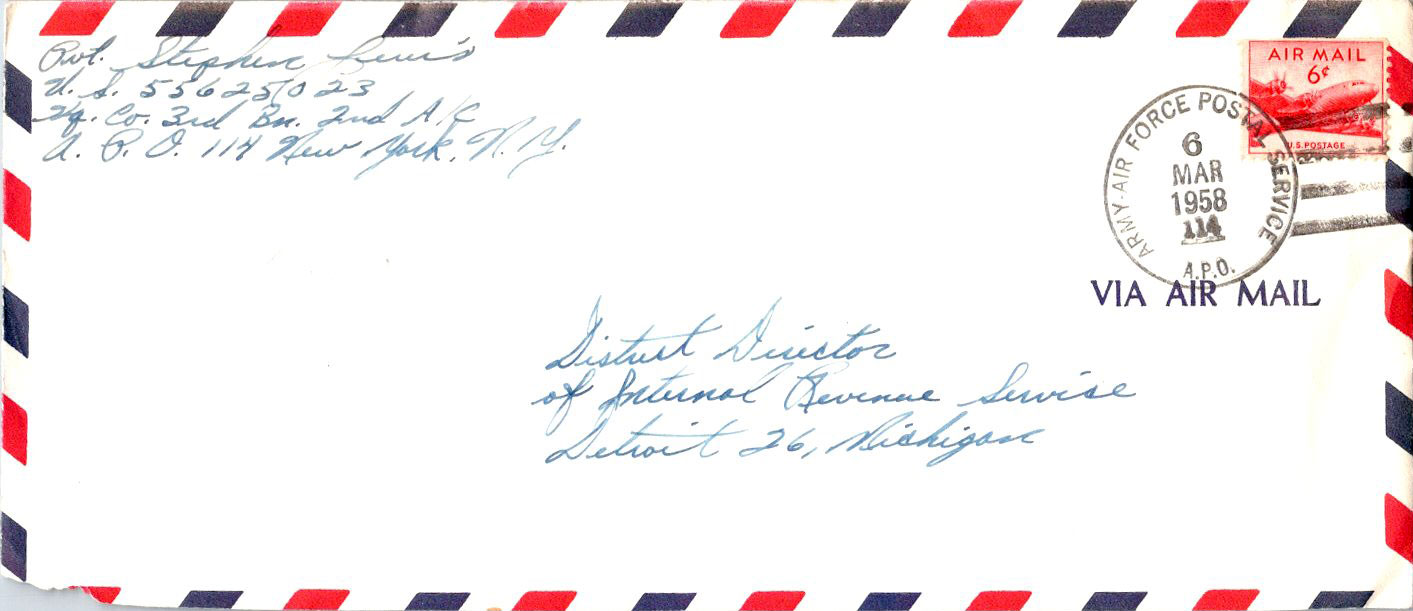 Pvt. Stephen Lewis
U. S. 55625023
Hq. Co. 3rd Bn. 2nd A/C
A. P. O. 114 New York, N. Y.
AIR MAIL
6¢
U.S. POSTAGE
ARMY-AIR FORCE POSTAL SERVICE
6
MAR
1958
114
A.P.O.
VIA AIR MAIL
District Director
of Internal Revenue Service
Detroit 26, Michigan